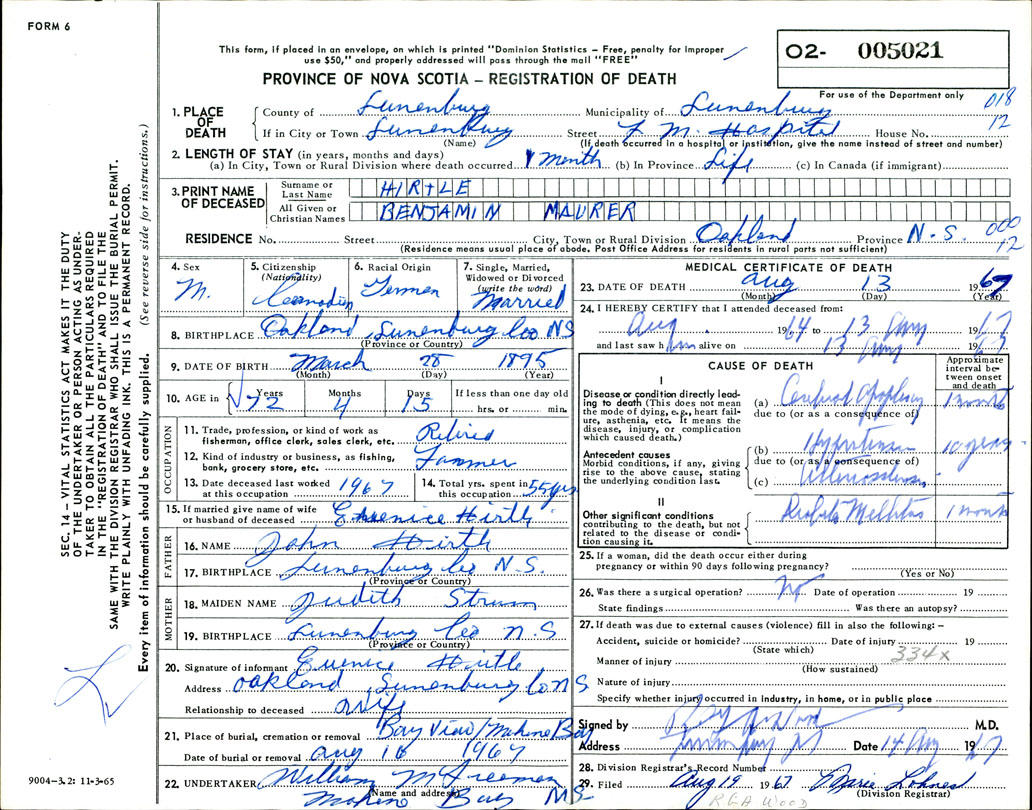 FORM 6
This form, if placed in an envelope, on which is printed "Dominion Statistics – Free, penalty for improper
use $50," and properly addressed will pass through the mail "FREE"
PROVINCE OF NOVA SCOTIA – REGISTRATION OF DEATH
O2- 005021
For use of the Department only
018
12
1. PLACE OF DEATH
County of Lunenburg Municipality of Lunenburg
If in City or Town Lunenburg Street F. M. Hospital House No.
(Name) (If death occurred in a hospital or institution, give the name instead of street and number)
2. LENGTH OF STAY (in years, months and days)
(a) In City, Town or Rural Division where death occurred 1 month (b) In Province Life (c) In Canada (if immigrant)
3. PRINT NAME OF DECEASED
Surname or Last Name HIRTLE
All Given or Christian Names BENJAMIN MAURER
RESIDENCE No. Street City, Town or Rural Division Oakland Province N.S.
000
12
(Residence means usual place of abode. Post Office Address for residents in rural parts not sufficient)
4. Sex M.
5. Citizenship (Nationality) Canadian
6. Racial Origin German
7. Single, Married, Widowed or Divorced (write the word) Married
8. BIRTHPLACE Oakland, Lunenburg Coo NS
(Province or Country)
9. DATE OF BIRTH March 28 1895
(Month) (Day) (Year)
10. AGE in Years 72 Months 4 Days 15 If less than one day old hrs. or min.
OCCUPATION
11. Trade, profession, or kind of work as fisherman, office clerk, sales clerk, etc. Retired
12. Kind of industry or business, as fishing, bank, grocery store, etc. Farmer
13. Date deceased last worked at this occupation 1967
14. Total yrs. spent in this occupation 55 yrs
15. If married give name of wife or husband of deceased Eunice Hirtle
FATHER
16. NAME John Hirtle
17. BIRTHPLACE Lunenburg Co N.S.
(Province or Country)
MOTHER
18. MAIDEN NAME Judith Strum
19. BIRTHPLACE Lunenburg Co N.S
(Province or Country)
20. Signature of informant Eunice Hirtle
Address Oakland, Lunenburg Co NS
Relationship to deceased Wife
21. Place of burial, cremation or removal Bay View / Mahone Bay
Date of burial or removal Aug 16 1967
22. UNDERTAKER William M Freeman
(Name and address) Mahone Bay NS
MEDICAL CERTIFICATE OF DEATH
23. DATE OF DEATH Aug 13 1967
(Month) (Day) (Year)
24. I HEREBY CERTIFY that I attended deceased from:
Aug 1964 to 13 Aug 1967
and last saw him alive on 13 Aug 1967
CAUSE OF DEATH
Approximate interval between onset and death
I
Disease or condition directly leading to death (This does not mean the mode of dying, e.g., heart failure, asthenia, etc. It means the disease, injury, or complication which caused death.)
(a) Cerebral Apoplexy 1 month
due to (or as a consequence of)
Antecedent causes
Morbid conditions, if any, giving rise to the above cause, stating the underlying condition last.
(b) Hypertension 10 years
due to (or as a consequence of)
(c) Atherosclerosis
II
Other significant conditions
contributing to the death, but not related to the disease or condition causing it.
Diabetes Mellitus 1 month
25. If a woman, did the death occur either during pregnancy or within 90 days following pregnancy?
(Yes or No)
26. Was there a surgical operation? No Date of operation 19
State findings Was there an autopsy?
27. If death was due to external causes (violence) fill in also the following: –
Accident, suicide or homicide? Date of injury 19
(State which) 334x
Manner of injury
(How sustained)
Nature of injury
Specify whether injury occurred in industry, in home, or in public place
Signed by M.D.
Address Date 14 Aug 1967
28. Division Registrar's Record Number
29. Filed Aug 19 1967 Marie Lohnes
(Division Registrar)
RGA WOOD
SEC. 14 – VITAL STATISTICS ACT MAKES IT THE DUTY
OF THE UNDERTAKER OR PERSON ACTING AS UNDER-
TAKER TO OBTAIN ALL THE PARTICULARS REQUIRED
IN THE "REGISTRATION OF DEATH" AND TO FILE THE
SAME WITH THE DIVISION REGISTRAR WHO SHALL ISSUE THE BURIAL PERMIT.
WRITE PLAINLY WITH UNFADING INK. THIS IS A PERMANENT RECORD.
Every item of information should be carefully supplied. (See reverse side for instructions.)
9004–3.2: 11-3-65